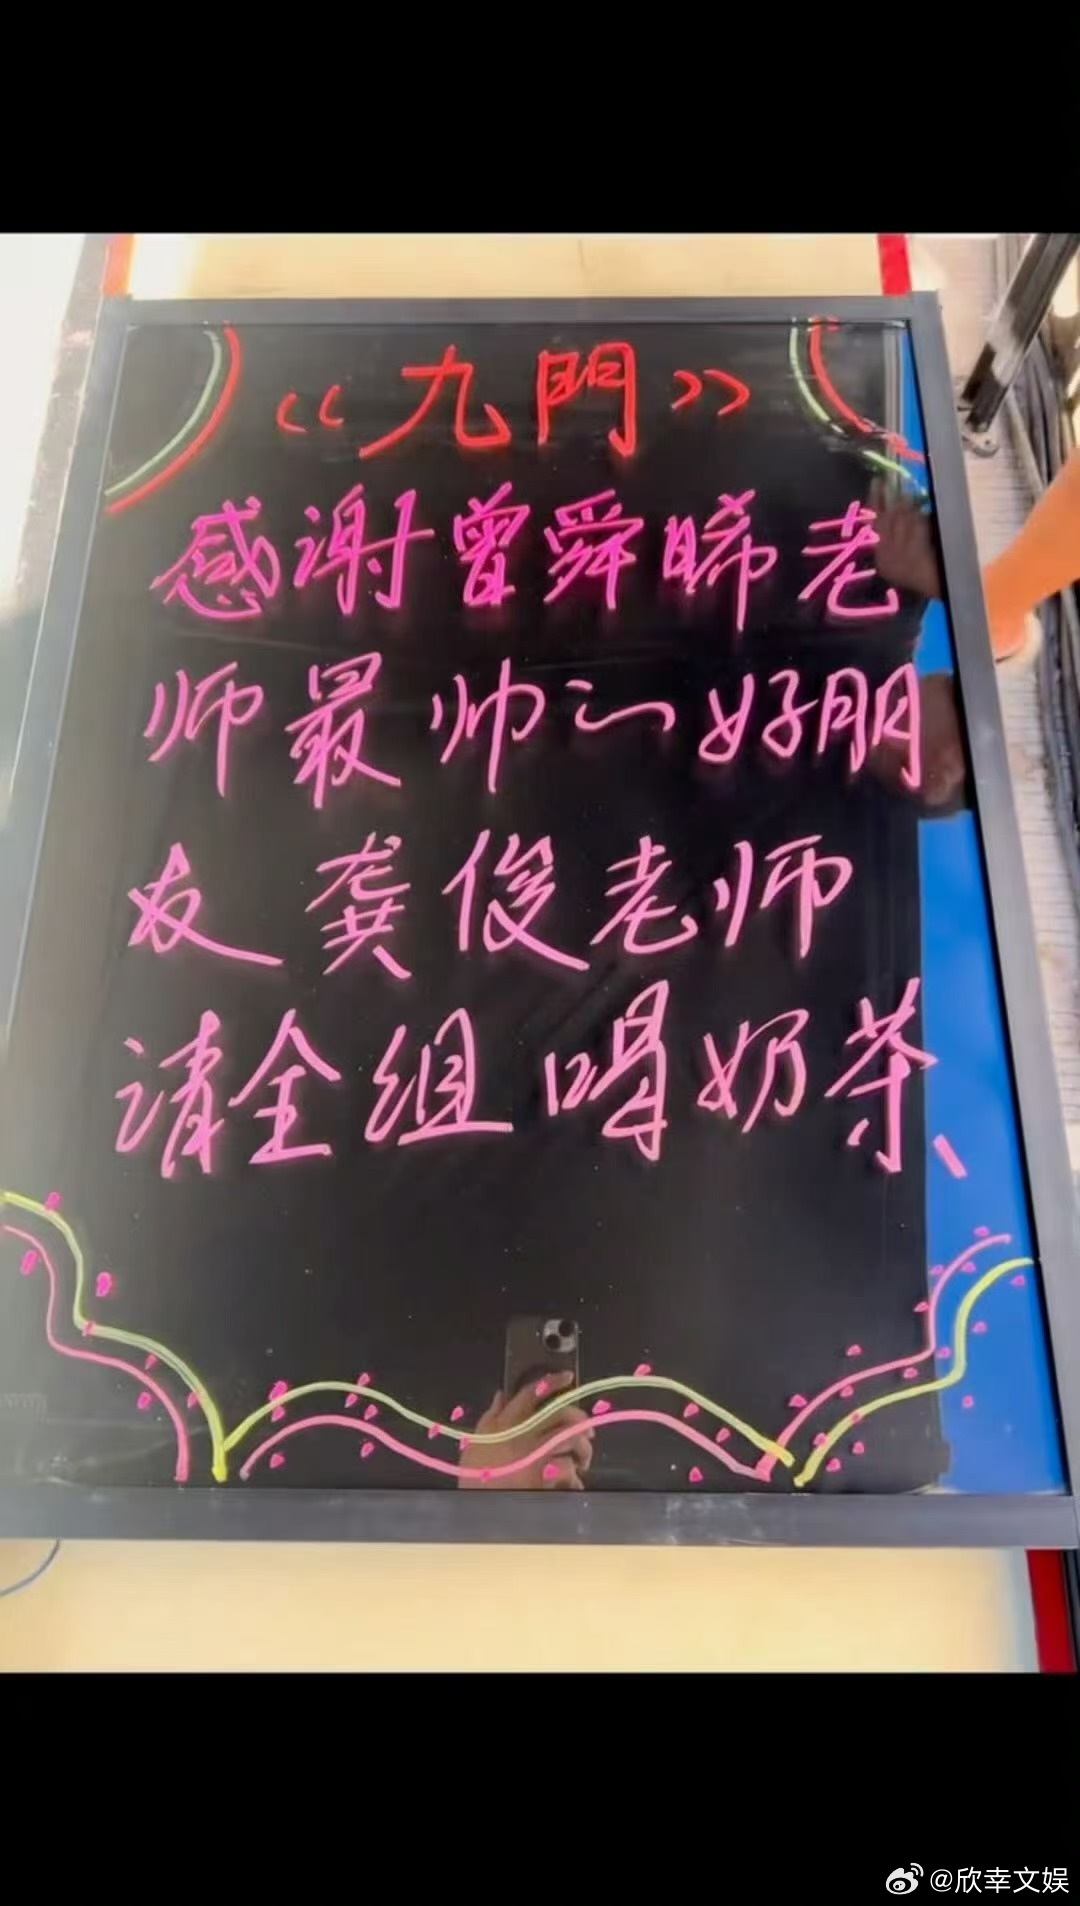 《九門》
感谢曾舜晞老
师最帅的好朋
友龚俊老师
请全组喝奶茶
@欣幸文娱